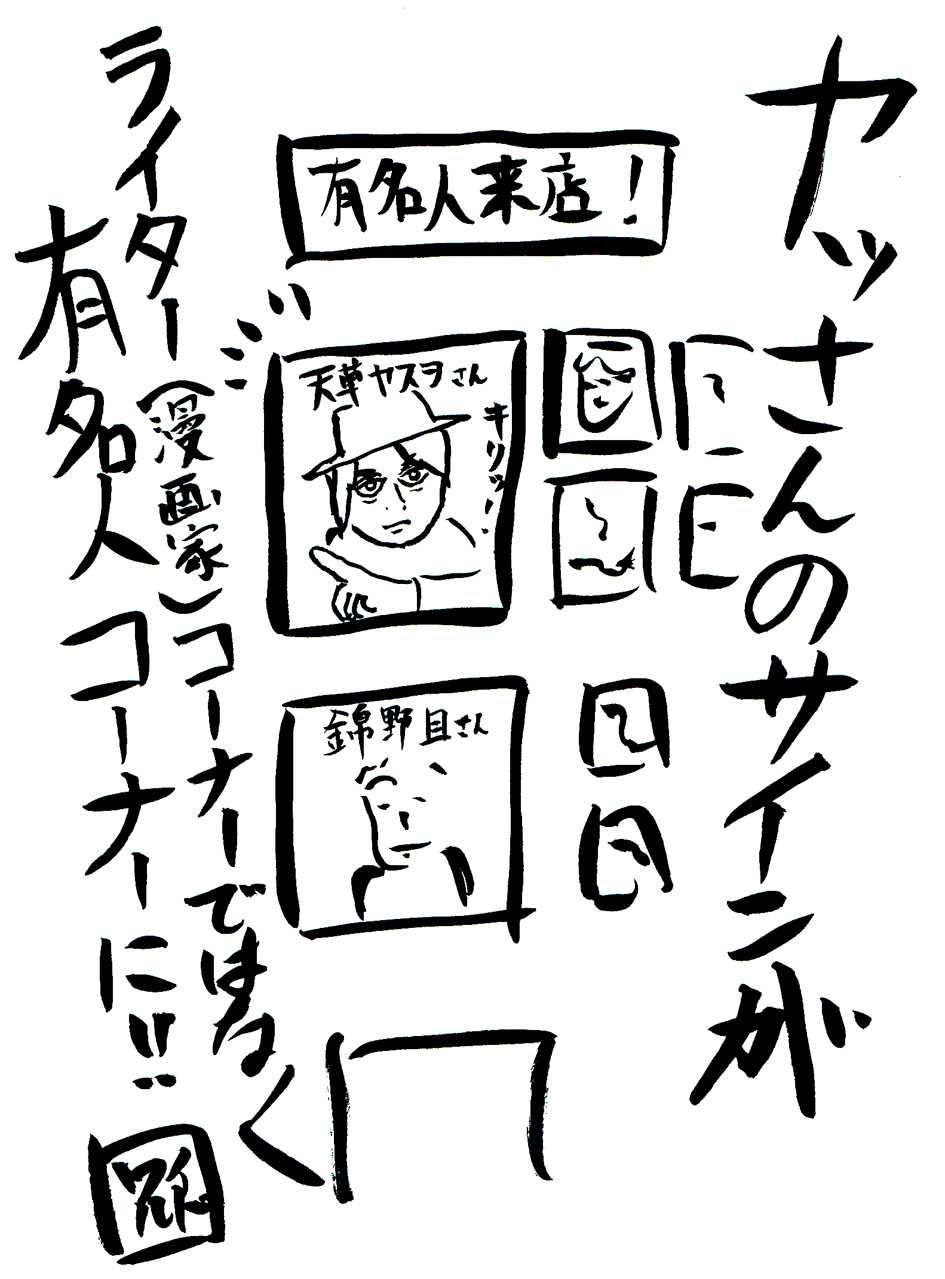 ヤッさんのサインが
有名人来店！
天草ヤスヲさん
キリッ！
錦野目さん
ライター（漫画家）コーナーではなく
有名人コーナーに！！